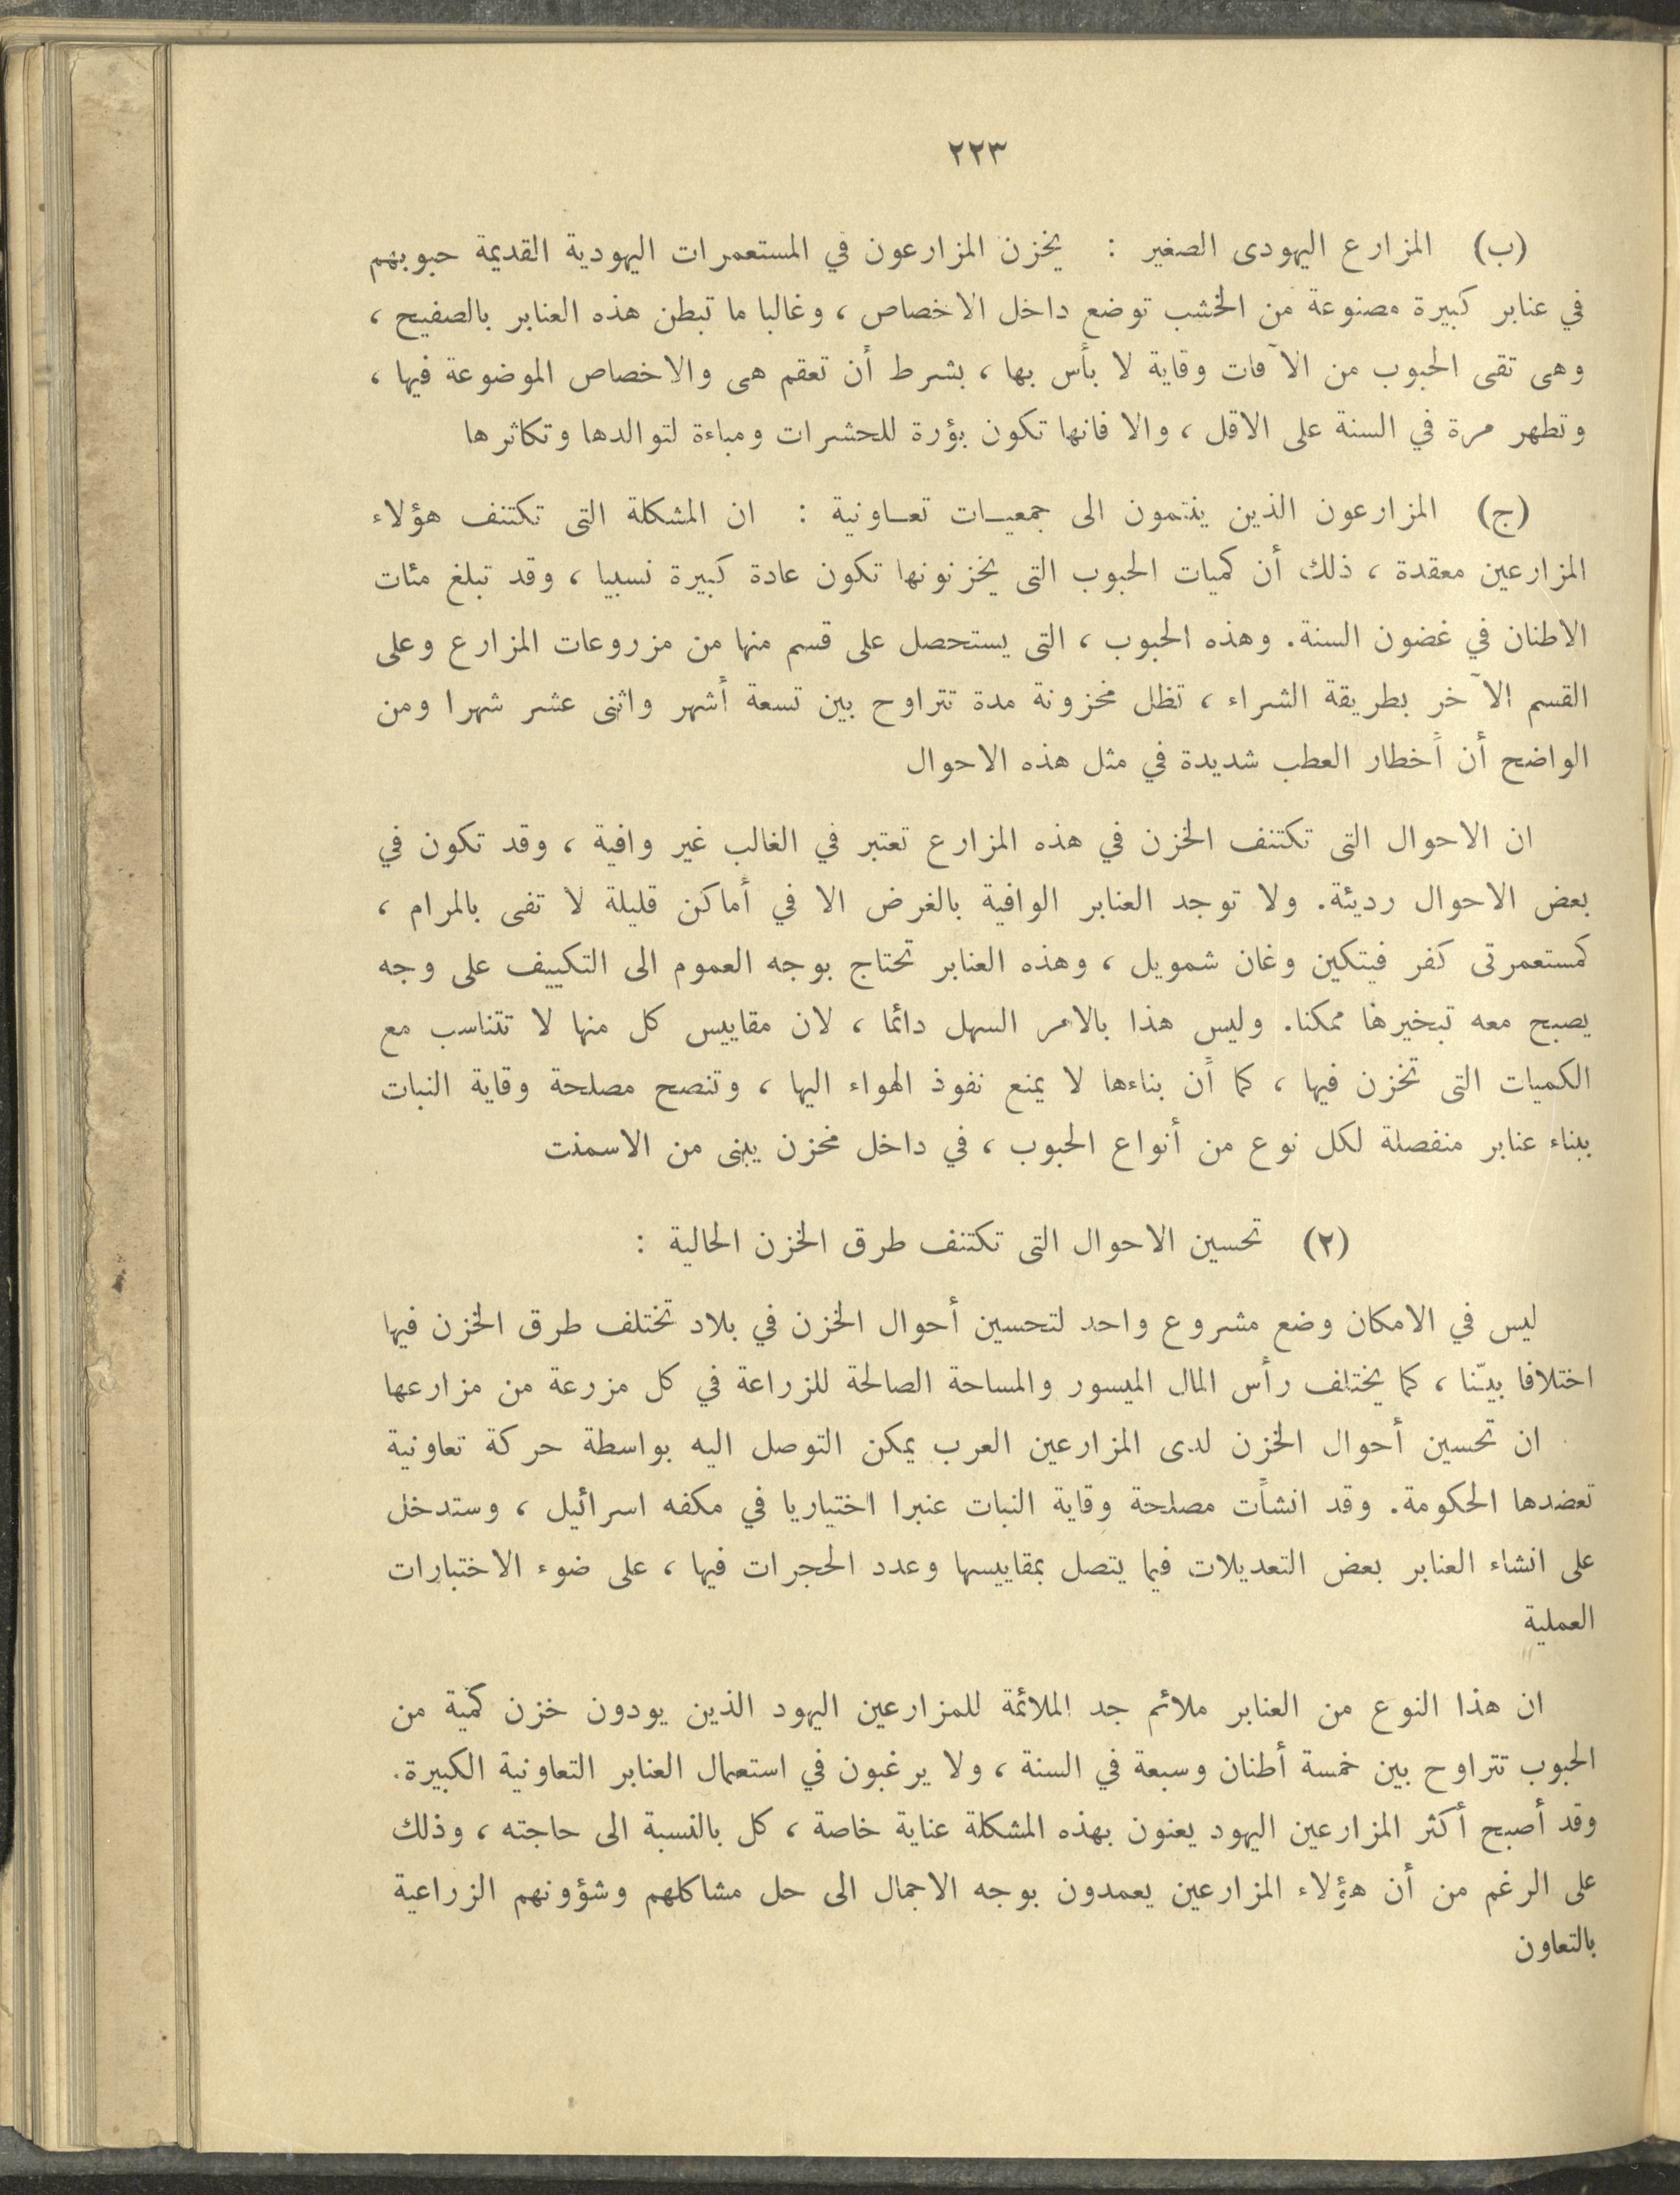 ٢٢٣
(ب) المزارع اليهودى الصغير : يخزن المزارعون في المستعمرات اليهودية القديمة حبوبهم
في عنابر كبيرة مصنوعة من الخشب توضع داخل الاخصاص ، وغالبا ما تبطن هذه العنابر بالصفيح ،
وهى تقى الحبوب من الآفات وقاية لا بأس بها ، بشرط أن تعقم هى والاخصاص الموضوعة فيها ،
وتطهر مرة في السنة على الاقل ، والا فانها تكون بؤرة للحشرات ومباءة لتوالدها وتكاثرها
(ج) المزارعون الذين ينتمون الى جمعيات تعاونية : ان المشكلة التى تكتنف هؤلاء
المزارعين معقدة ، ذلك أن كميات الحبوب التى يخزنونها تكون عادة كبيرة نسبيا ، وقد تبلغ مئات
الاطنان في غضون السنة. وهذه الحبوب ، التى يستحصل على قسم منها من مزروعات المزارع وعلى
القسم الآخر بطريقة الشراء ، تظل مخزونة مدة تتراوح بين تسعة أشهر واثنى عشر شهرا ومن
الواضح أن أخطار العطب شديدة في مثل هذه الاحوال
ان الاحوال التى تكتنف الخزن في هذه المزارع تعتبر في الغالب غير وافية ، وقد تكون في
بعض الاحوال رديئة. ولا توجد العنابر الوافية بالغرض الا في أماكن قليلة لا تفى بالمرام ،
كمستعمرتى كفر فيتكين وغان شمويل ، وهذه العنابر تحتاج بوجه العموم الى التكييف على وجه
يصبح معه تبخيرها ممكنا. وليس هذا بالامر السهل دائما ، لان مقاييس كل منها لا تتناسب مع
الكميات التى تخزن فيها ، كما أن بناءها لا يمنع نفوذ الهواء اليها ، وتنصح مصلحة وقاية النبات
ببناء عنابر منفصلة لكل نوع من أنواع الحبوب ، في داخل مخزن يبنى من الاسمنت
(٢) تحسين الاحوال التى تكتنف طرق الخزن الحالية :
ليس في الامكان وضع مشروع واحد لتحسين أحوال الخزن في بلاد تختلف طرق الخزن فيها
اختلافا بيّنا ، كما يختلف رأس المال الميسور والمساحة الصالحة للزراعة في كل مزرعة من مزارعها
ان تحسين أحوال الخزن لدى المزارعين العرب يمكن التوصل اليه بواسطة حركة تعاونية
تعضدها الحكومة. وقد انشأت مصلحة وقاية النبات عنبرا اختياريا في مكفه اسرائيل ، وستدخل
على انشاء العنابر بعض التعديلات فيما يتصل بمقاييسها وعدد الحجرات فيها ، على ضوء الاختبارات
العملية
ان هذا النوع من العنابر ملائم جد الملائمة للمزارعين اليهود الذين يودون خزن كمية من
الحبوب تتراوح بين خمسة أطنان وسبعة في السنة ، ولا يرغبون في استعمال العنابر التعاونية الكبيرة.
وقد أصبح أكثر المزارعين اليهود يعنون بهذه المشكلة عناية خاصة ، كل بالنسبة الى حاجته ، وذلك
على الرغم من أن هؤلاء المزارعين يعمدون بوجه الاجمال الى حل مشاكلهم وشؤونهم الزراعية
بالتعاون